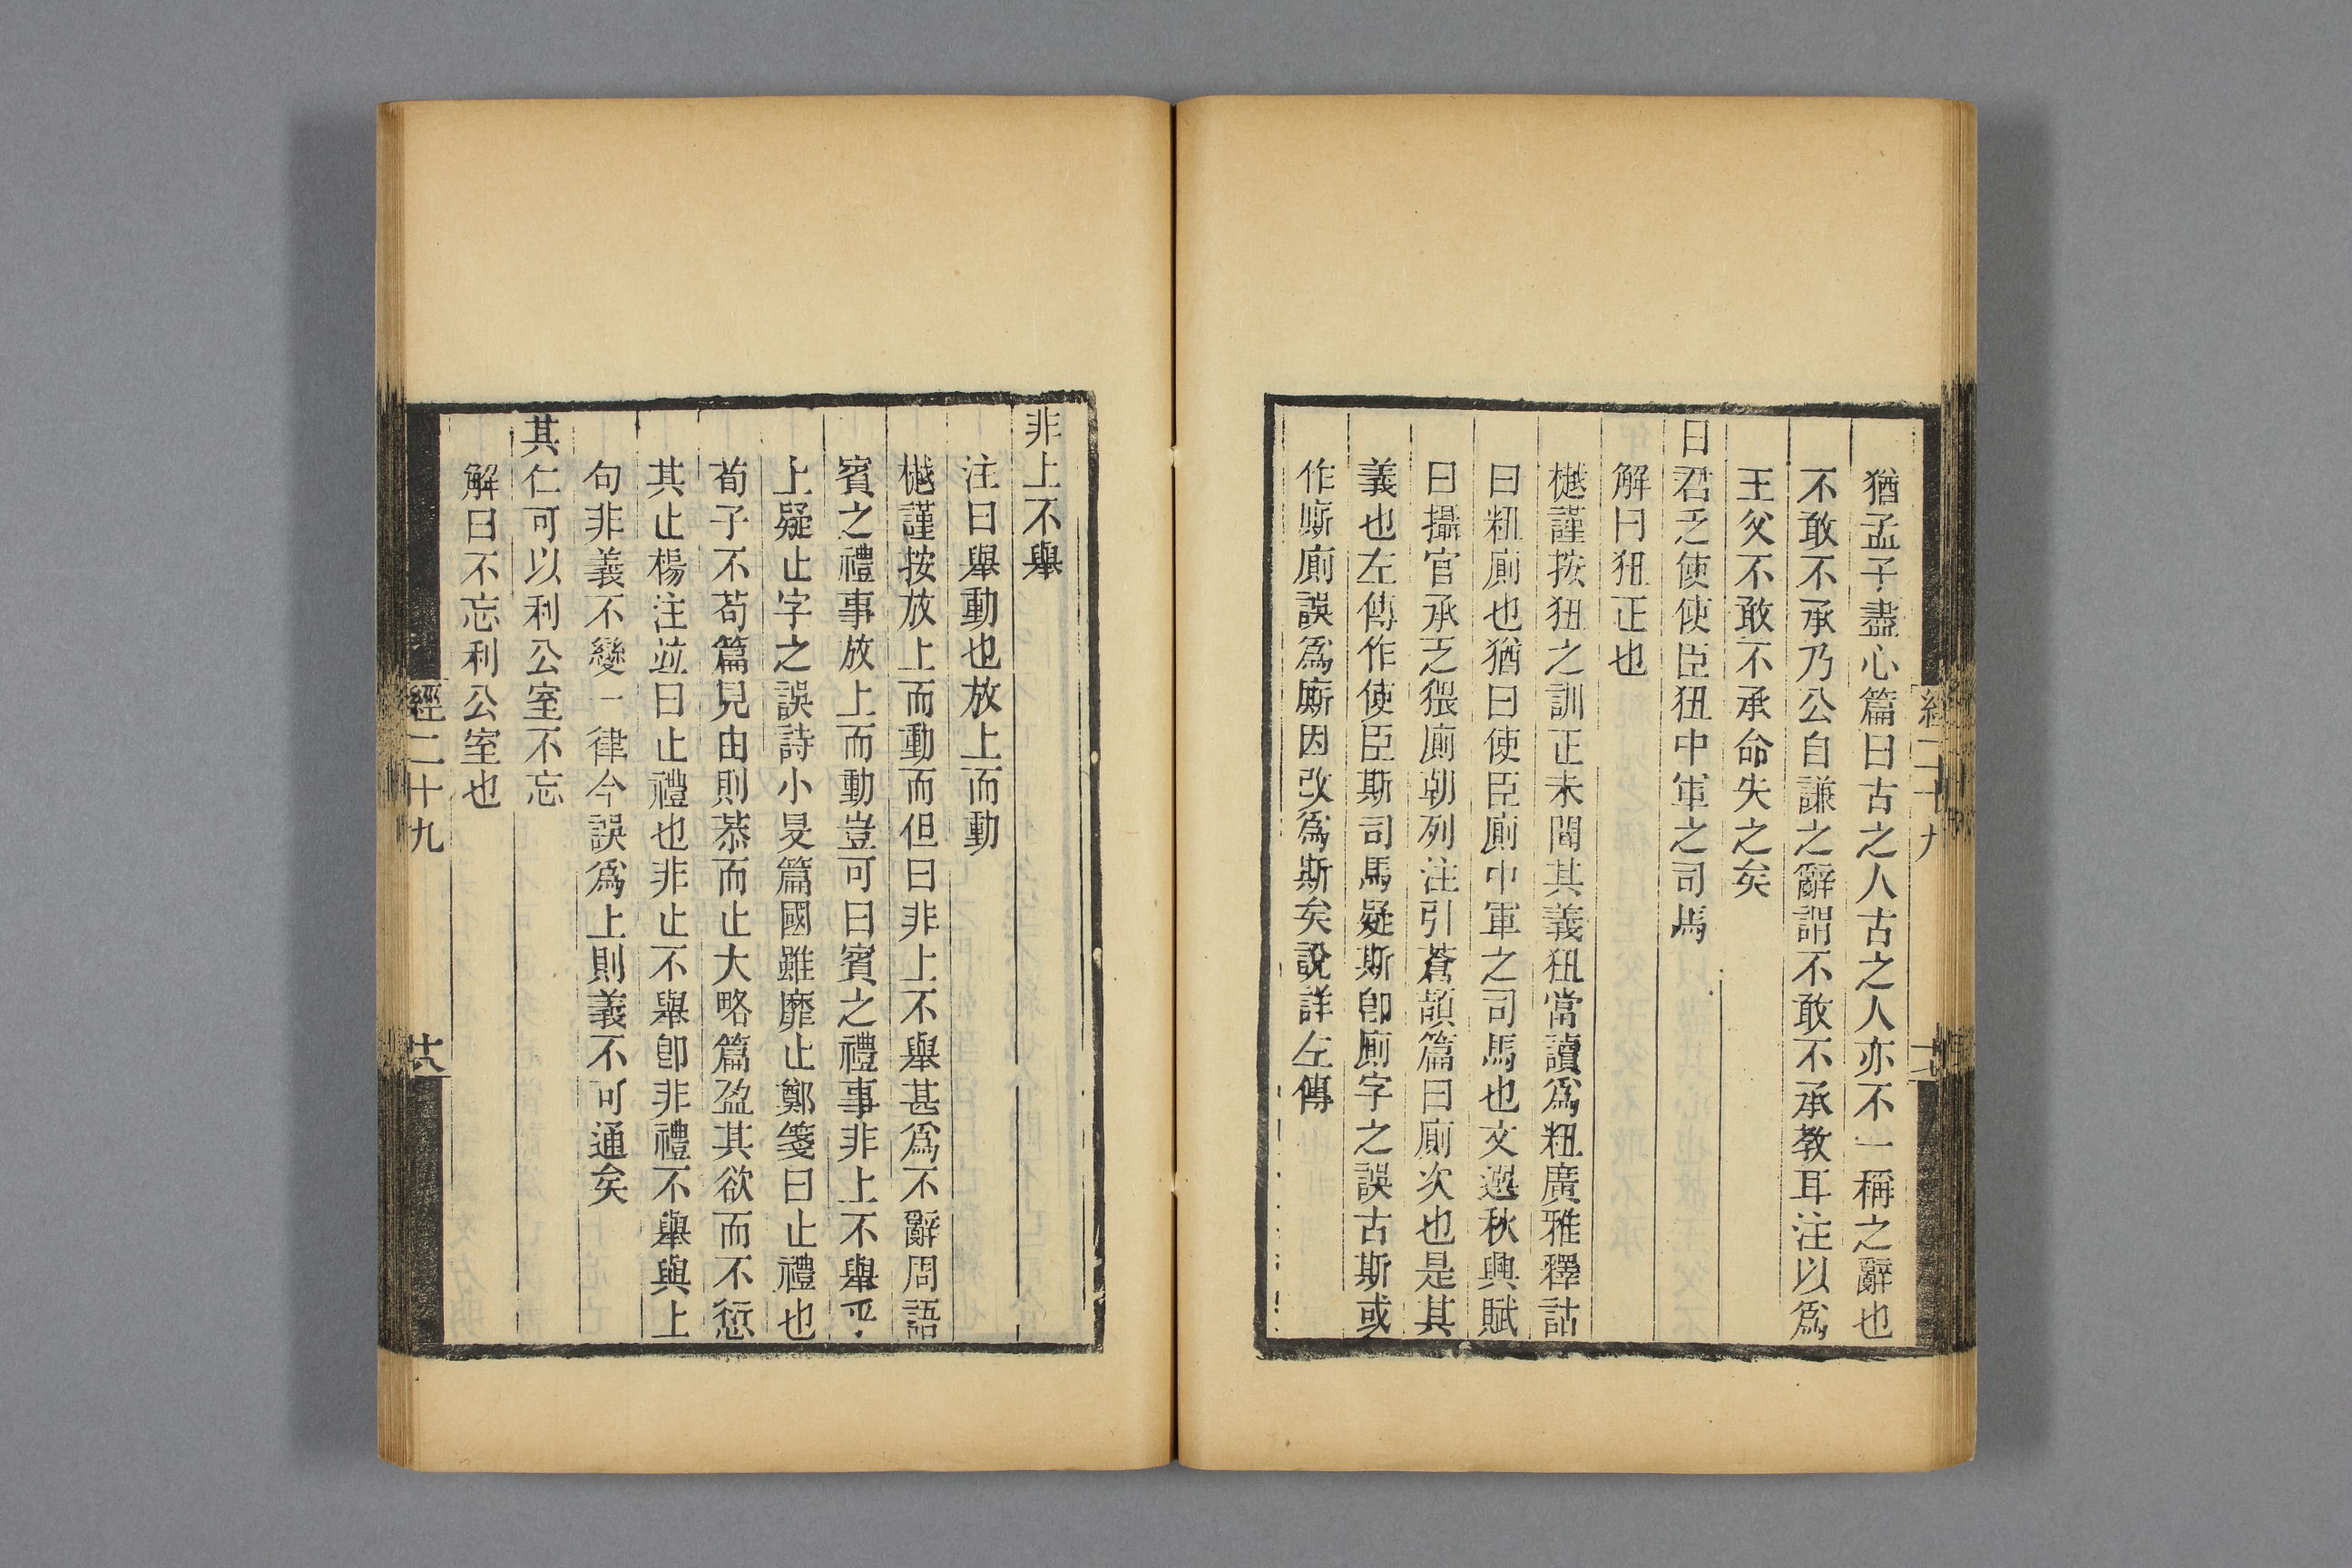 猶孟子盡心篇曰古之人古之人亦不一稱之辭也
不敢不承乃公自謙之辭謂不敢不承教耳注以爲
王父不敢不承命失之矣
曰君乏使使臣狃中軍之司馬
解曰狃正也
樾謹按狃之訓正未聞其義狃當讀爲粈廣雅釋詁
曰粈廁也猶曰使臣廁中軍之司馬也文選秋興賦
曰攝官承乏猥廁朝列注引蒼頡篇曰廁次也是其
義也左傳作使臣斯司馬疑斯卽廁字之誤古斯或
作廝廁誤爲廝因改爲斯矣說詳左傳
非上不舉
注曰舉動也放上而動
樾謹按放上而動而但曰非上不舉甚爲不辭周語
賓之禮事放上而動豈可曰賓之禮事非上不舉乎
上疑止字之誤詩小旻篇國雖靡止鄭箋曰止禮也
荀子不苟篇見由則恭而止大略篇盈其欲而不愆
其止楊注竝曰止禮也非止不舉卽非禮不舉與上
句非義不變一律今誤爲上則義不可通矣
其仁可以利公室不忘
解曰不忘利公室也
經二十九
廿八